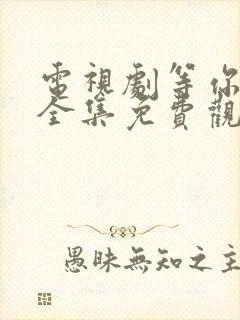 電視劇等你
全集免費觀
愚昧無知之主